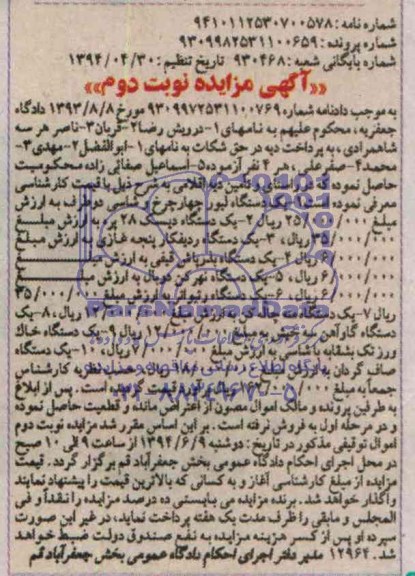 شماره نامه: ۹۴۱۰۱۱۲۵۳۰۷۰۰۵۷۸
شماره پرونده: ۹۳۰۹۹۸۲۵۳۱۱۰۰۶۵۹
شماره بایگانی شعبه: ۹۳۰۴۶۸ تاریخ تنظیم: ۱۳۹۴/۰۴/۳۰
««آگهی مزایده نوبت دوم»»
به موجب دادنامه شماره ۹۳۰۹۹۷۲۵۳۱۱۰۰۷۶۹ مورخ ۱۳۹۳/۸/۸ دادگاه
جعفریه، محکوم علیهم به نامهای ۱-درویش رضا ۲-قربان ۳-ناصر هر سه
شاهمرادی، به پرداخت دیه در حق شکات به نامهای ۱-ابوالفضل ۲-مهدی ۳-
محمد ۴-صفرعلی، هر ۴ نفر آزموده ۵-اسماعیل صفائی زاده محکومیت
حاصل نموده که در راستای تأمین دیه اقلامی به شرح ذیل با قیمت کارشناسی
معرفی نموده دستگاه لیور چهارچرخ شاسی دوطرف به ارزش
مبلغ ۲۵/۰۰۰/۰۰۰ ریال ۲-یک دستگاه دیسک ۲۸ پره به ارزش مبلغ
۳۵/۰۰۰/۰۰۰ ریال، ۳-یک دستگاه ردیفکار پنجه غازی به ارزش مبلغ
ریال ۴-یک دستگاه بذرپاش قیفی به ارزش
ریال، ۵-یک دستگاه نهرکن دوبال به ارزش
ریال، ۶-یک دستگاه رتیواتر به ارزش مبلغ ۳۵/۰۰۰/۰۰۰
ریال ۷-یک ریال، ۸-یک
دستگاه گاوآهن به مبلغ ۱۲/۰۰۰/۰۰۰ ریال ۹-یک دستگاه خاک
ورز تک بشقابه با شاسی به ارزش مبلغ ۷/۰۰۰/۰۰۰ ریال، ۱۰-یک دستگاه
صاف گردان به ارزش مبلغ نظریه کارشناس
جمعاً به مبلغ ریال برآورد قیمت گردیده است. پس از ابلاغ
به طرفین پرونده و مالک اموال مصون از اعتراض مانده و قطعیت حاصل نموده
و دو مرحله اول به فروش نرفته است. بر این اساس مقرر شد مزایده نوبت دوم
اموال توقیفی مذکور در تاریخ: دوشنبه ۱۳۹۴/۶/۹ از ساعت ۹ الی ۱۰ صبح
در محل اجرای احکام دادگاه عمومی بخش جعفرآباد قم برگزار گردد. قیمت
مزایده از مبلغ کارشناسی آغاز و به کسانی که بالاترین قیمت را پیشنهاد نمایند
واگذار خواهد شد. برنده مزایده می بایستی ده درصد مزایده را نقداً و فی
المجلس و مابقی را ظرف مدت یک هفته پرداخت نماید، در غیر این صورت
سپرده او پس از کسر هزینه مزایده به نفع صندوق دولت ضبط خواهد
شد. ۱۲۹۶۴ مدیر دفتر اجرای احکام دادگاه عمومی بخش جعفرآباد قم
ParsNamadData